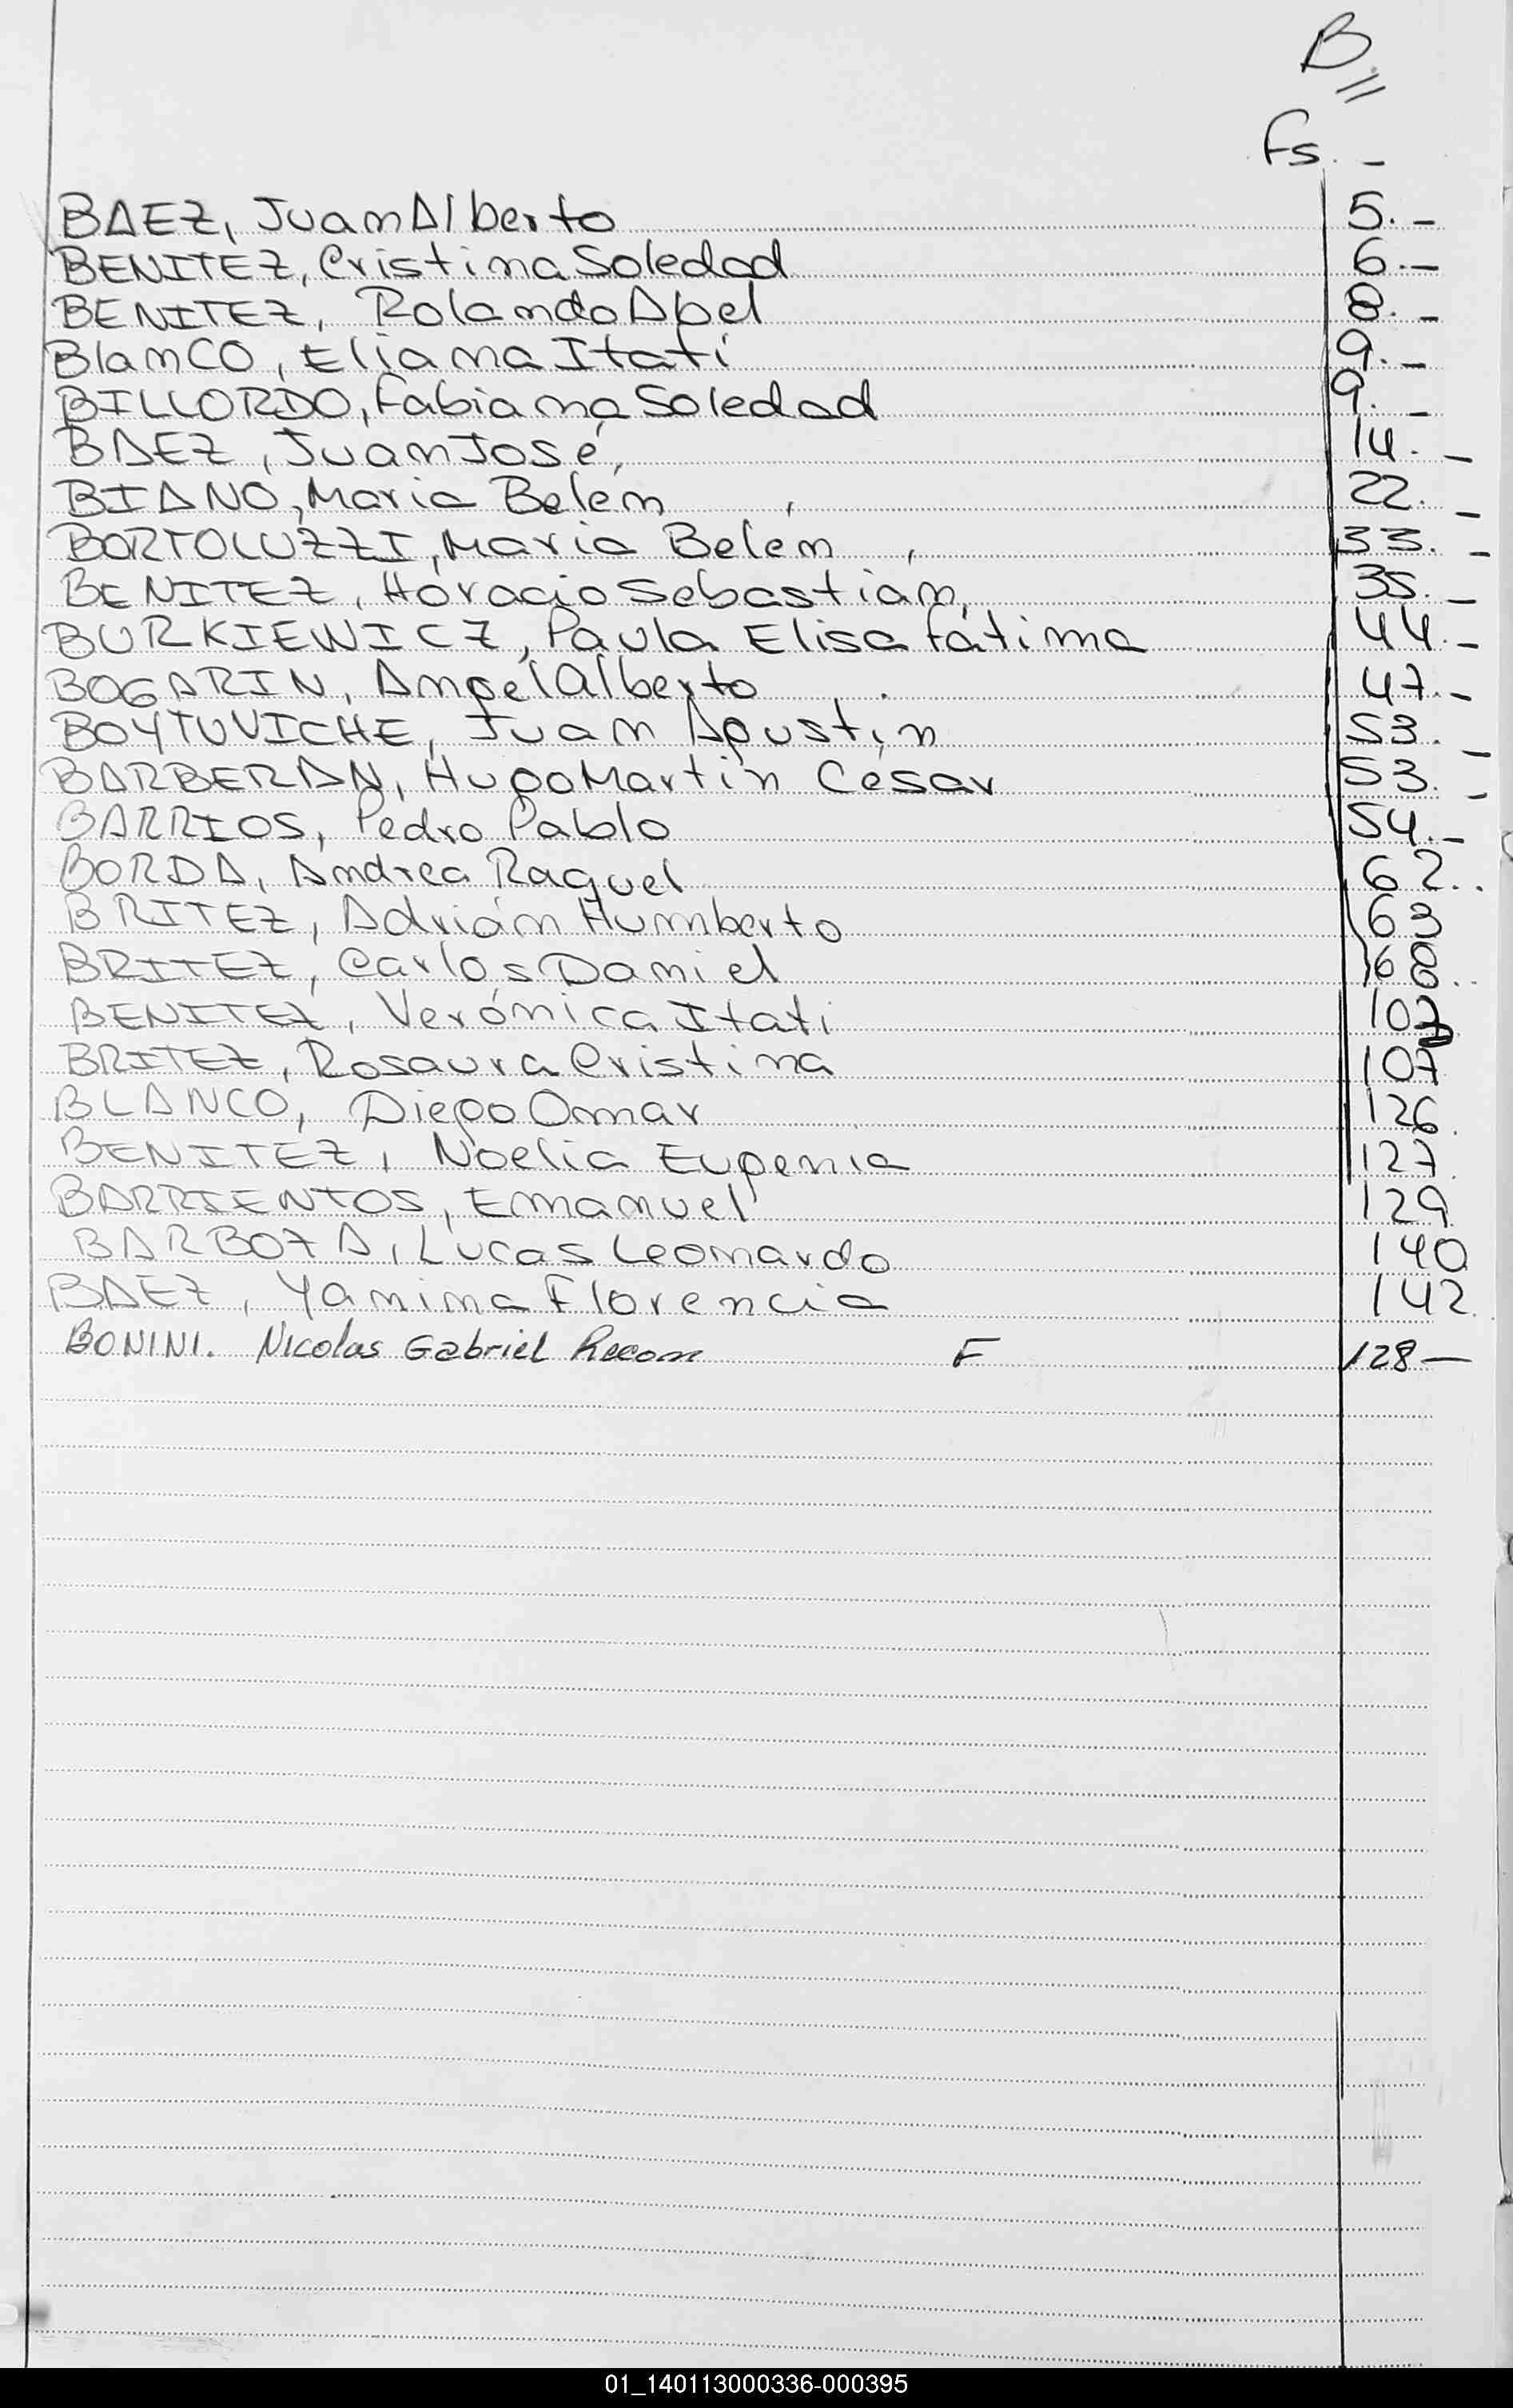 B.
Fs. -
BAEZ, Juan Alberto 5. -
BENITEZ, Cristina Soledad 6. -
BENITEZ, Rolando Abel 8. -
BlanCO, Eliana Itatí 9. -
BILLORDO, Fabiana Soledad 9. -
BAEZ, Juan José, 14. -
BIANO, Maria Belén, 22. -
BORTOLUZZI, Maria Belem, 33. -
BENITEZ, Horacio Sebastian, 35. -
BURKIEWICZ, Paula Elisa Fátima 44. -
BOGARIN, Angel Alberto. 47. -
BOYTUVICHE, Juan Agustin 53. -
BARBERAN, Hugo Martín César 53. -
BARRIOS, Pedro Pablo 54. -
BORDA, Andrea Raquel 62..
BRITEZ, Adrián Humberto 63
BRITEZ, Carlos Daniel 68..
BENITEZ, Verónica Itati 107
BRITEZ, Rosaura Cristina 107
BLANCO, Diego Omar 126.
BENITEZ, Noelia Eugenia 127
BARRIENTOS, Emanuel 129
BARBOZA, Lucas Leonardo 140
BAEZ, Yanina Florencia 142
BONINI. Nicolas Gabriel F 128 —
01_140113000336-000395